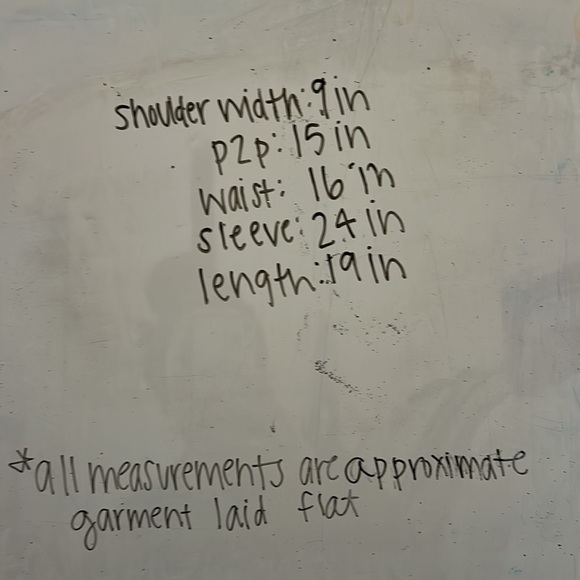 shoulder width: 9 in
p2p: 15 in
waist: 16 in
sleeve: 24 in
length: 19 in
*all measurements are approximate
garment laid flat